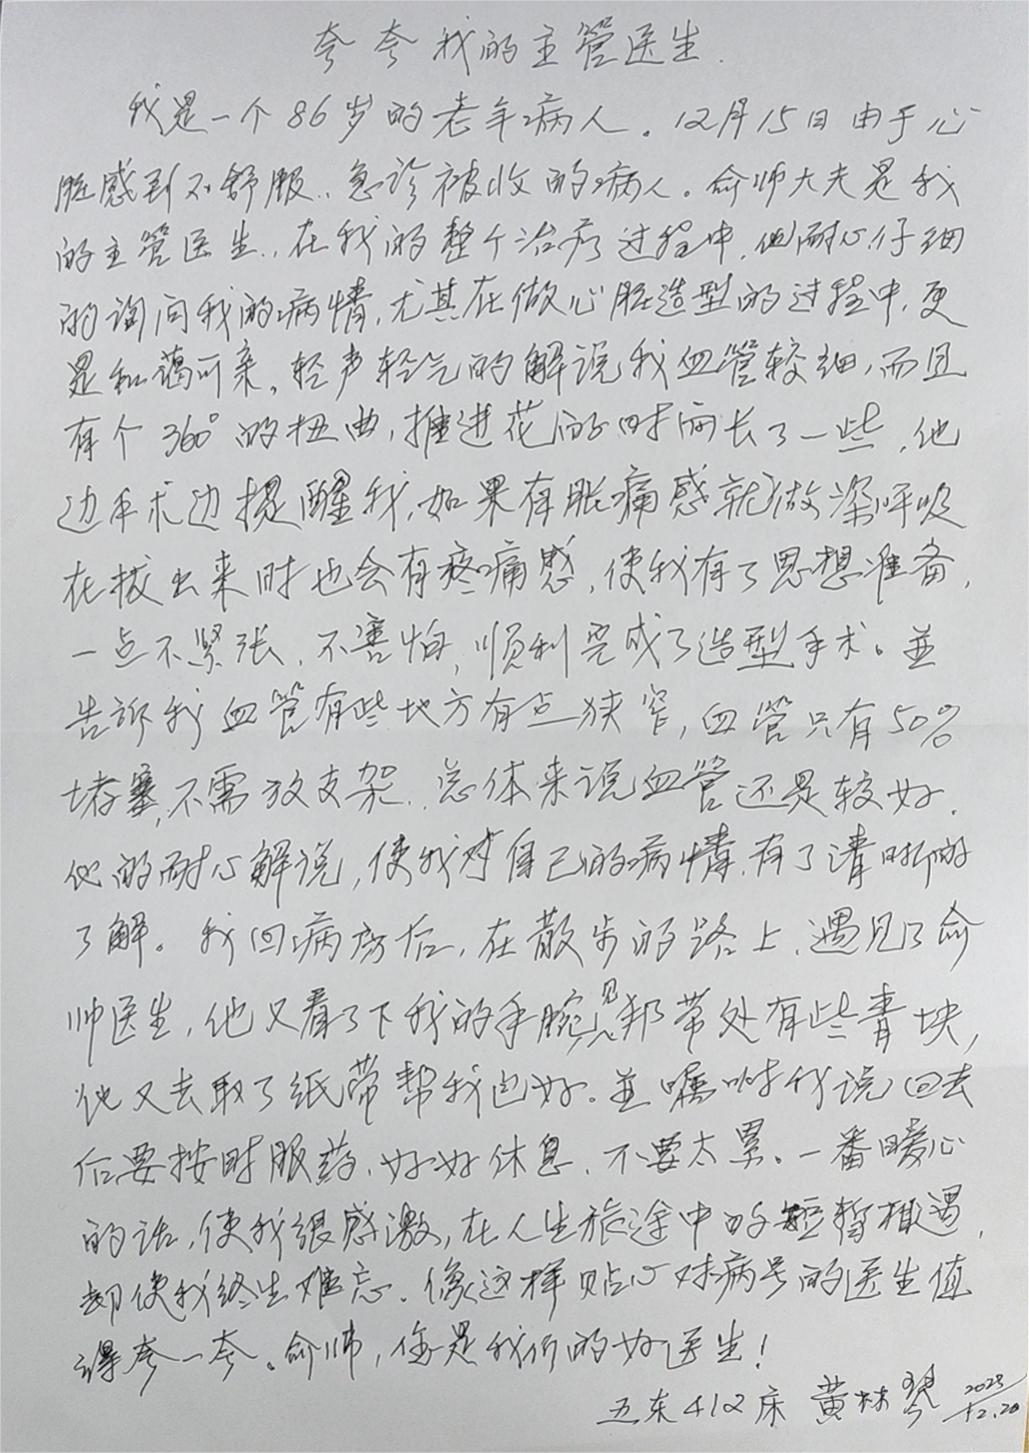 夸夸我的主管医生.
我是一个86岁的老年病人。12月15日由于心
脏感到不舒服..急诊被收的病人。俞帅大夫是我
的主管医生.,在我的整个治疗过程中,他耐心仔细
的询问我的病情,尤其在做心脏造型的过程中,更
是和蔼可亲。轻声轻气的解说我血管较细,而且
有个360°的扭曲,推进花的时间长了一些,他
边手术边提醒我,如果有胀痛感就做深呼吸
在拔出来时也会有疼痛感,使我有了思想准备,
一点不紧张,不害怕,顺利完成了造型手术。並
告诉我血管有些地方有点狭窄,血管只有50%
堵塞,不需放支架.,总体来说血管还是较好.
他的耐心解说,使我对自己的病情,有了清晰的
了解。我回病房后,在散步的路上,遇见了俞
帅医生,他又看了下我的手腕,见邦带处有些青块,
他又去取了纸带帮我包好。並嘱咐我说回去
后要按时服药、好好休息,不要太累。一番暖心
的话,使我很感激,在人生旅途中的短暂相遇,
却使我终生难忘。像这样贴心对病号的医生值
得夸一夸。俞帅,您是我们的好医生!
五东412床 黄林琴 2023 12.20